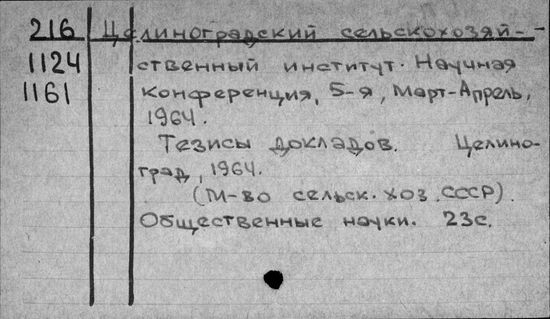 216 Целиноградский сельскохозяй-
1124 ственный институт. Научная
1161 конференция, 5-я, Март-Апрель,
1964.
Тезисы докладов. Целино-
град, 1964.
(М-во сельск. хоз. СССР).
Общественные науки. 23с.